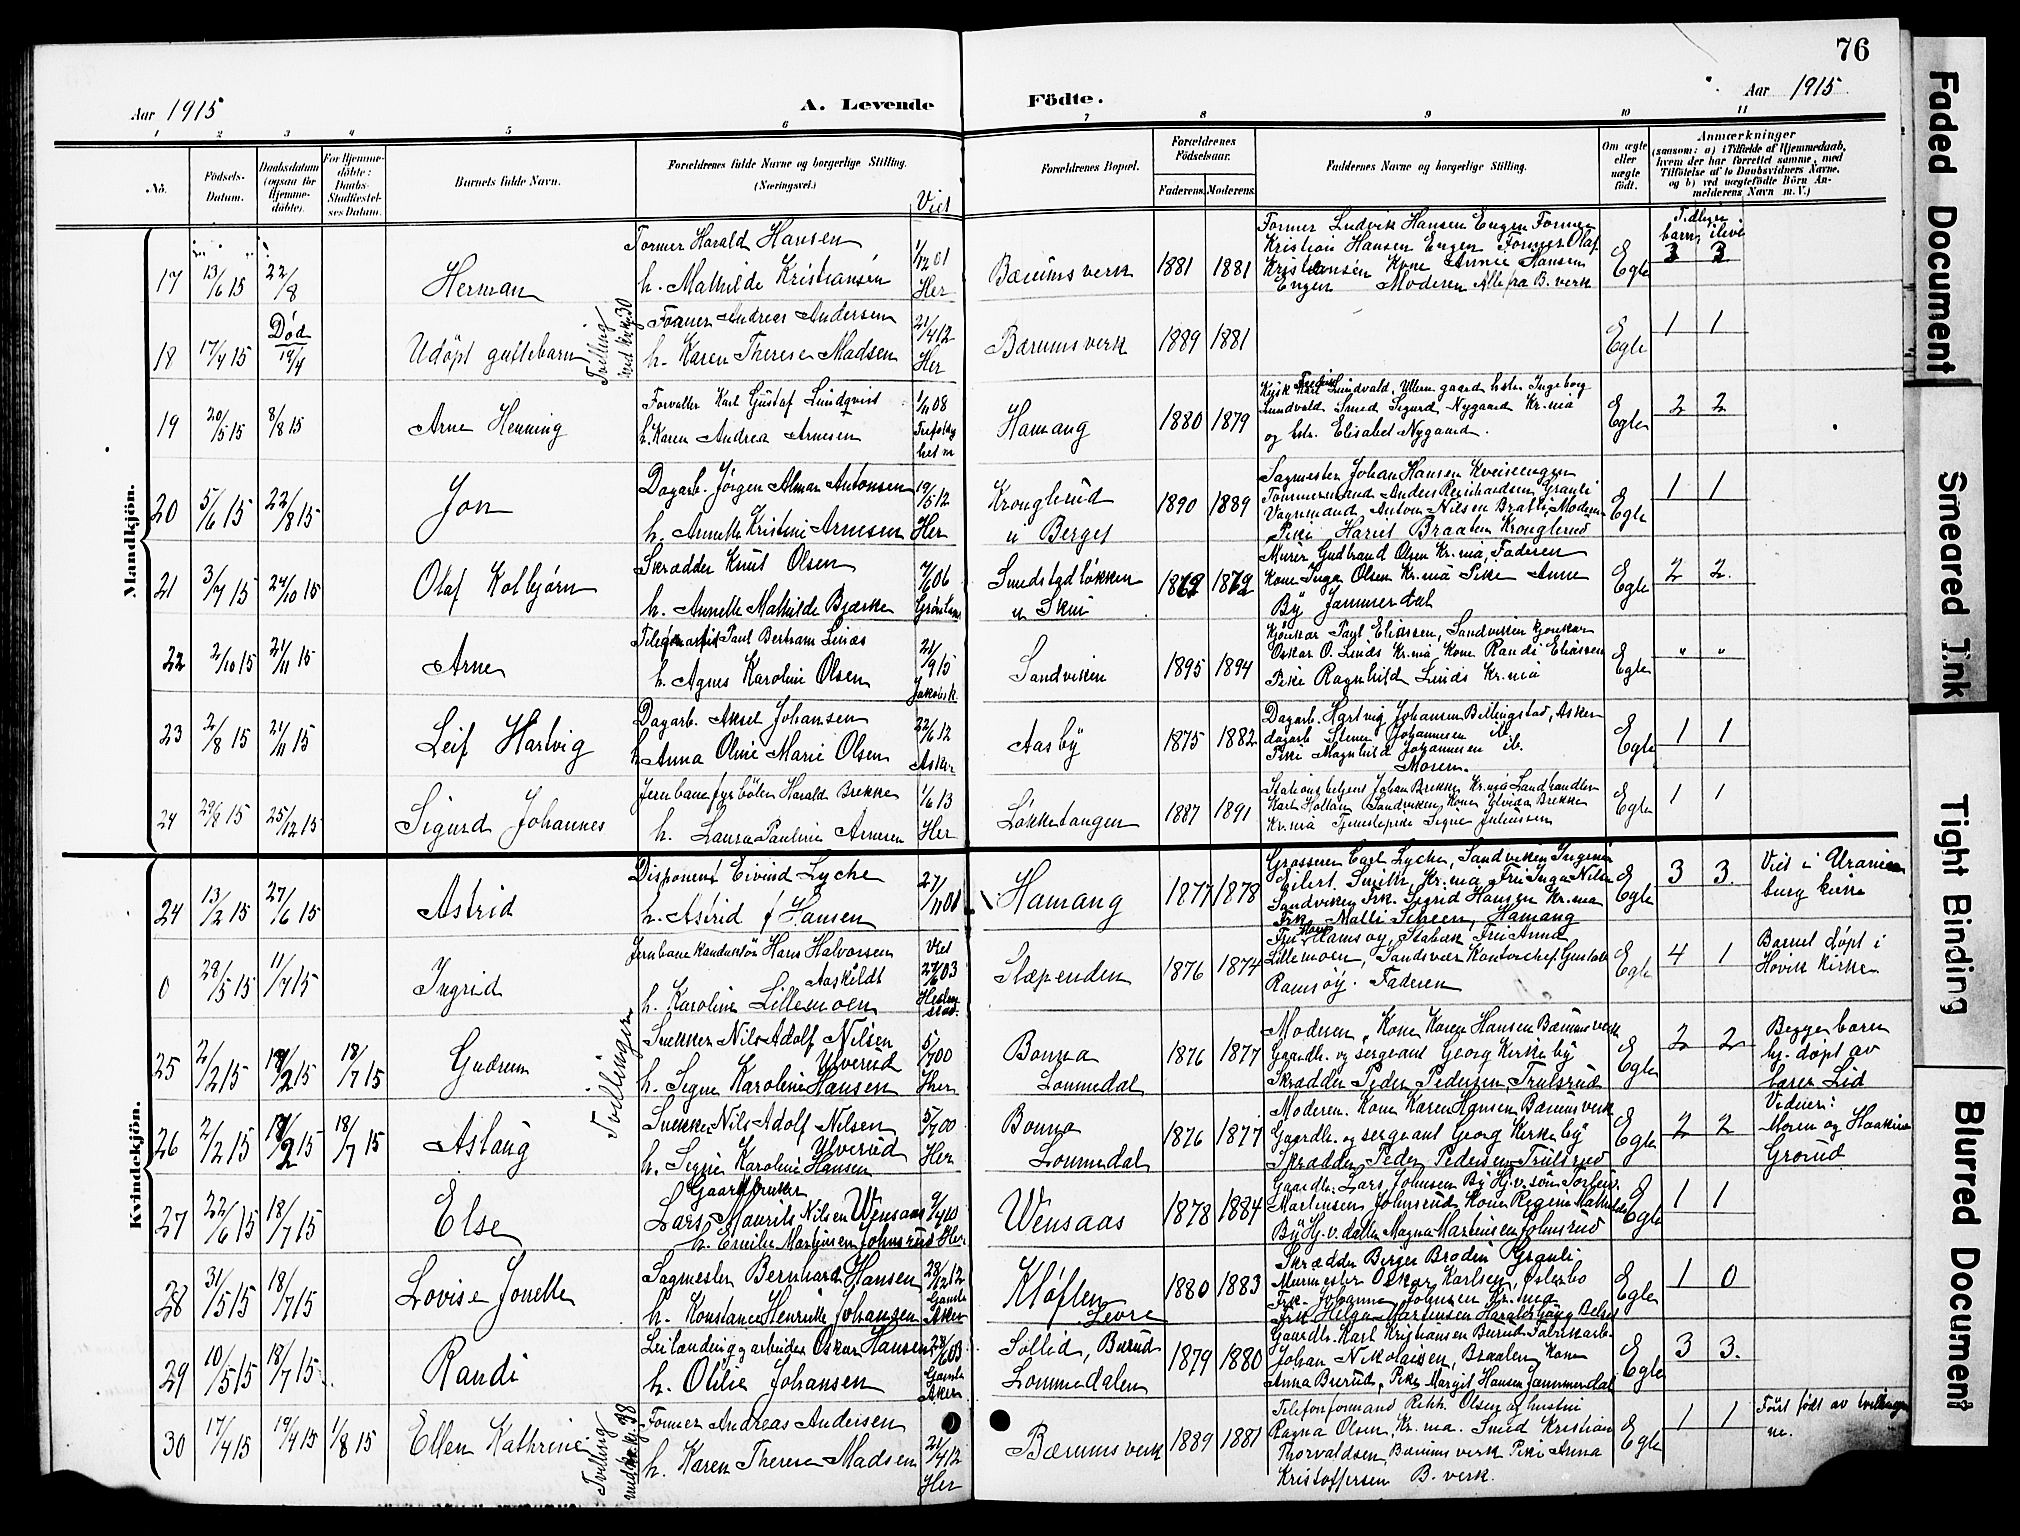 76
Aar 1915
A. Levende
Födte.
Aar 1915
1 2 3 4 5 6 7 8 9 10 11
No.
Födsels-
Datum.
Daabsdatum
(ogsaa for
Hjemme-
döbte).
For Hjemme-
döbte:
Daabs-
Stadfæstel-
ses Datum.
Barnets fulde Navn.
Forældrenes fulde Navne og borgerlige Stilling.
(Næringsvei.)
Viet
Forældrenes Bopæl.
Forældrenes
Födselsaar.
Faderens. Moderens.
Faddernes Navne og borgerlige Stilling.
Om ægte
eller
uægte
födt.
Anmærkninger
(saasom: a) i Tilfælde af Hjemmedaab,
hvem der har forrettet samme, med
Tilföielse af to Daabsvidners Navne,
og b) ved uægtefödte Börn An-
melderens Navn m. V.)
Mandkjön.
17 13/6 15 22/8 Herman
Former Harald Hansen
h. Mathilde Kristiansen
1/12 01
Her
Bærums verk 1881 1881
Former Ludvik Hansen Engen Former
Kristian Hansen Engen Former Olaf
Kristiansen Kone Annie Hansen
Engen Moderen Alle fra B. verk
Egte
Tidligere
barn ilive
3 3
18 17/4 15
Død
19/4
Udöpt guttebarn
Tvilling
med kv.k. 30
Former Andreas Andersen
h. Karen Therese Madsen
21/4 12
Her
Bærums verk 1889 1881
Egte 1 1
19 20/5 15 8/8 15 Arne Henning
Forvalter Karl Gustaf Lundqvist
h. Karen Andrea Arnesen
1/11 08
Hamang 1880 1879
Kusk Karl Lundvald, Ullern gaard hstr. Ingeborg
Lundvald Smed Sigurd Nygaard Kr.nia
og hstr. Elisabet Nygaard.
Egte 2 2
20 5/6 15 22/8 15 Jon
Dagarb. Jørgen Almar Antonsen
h. Annette Kristine Arnesen
19/5 12
Her
Kronglerud
u Berget
1890 1889
Sagmester Johan Hansen
Tømmermand Anders Reinhardsen Granli
Vognmand Anton Nilsen Bratli, Moderen
Pike Harriet Braaten Kronglerud
Egte 1 1
21 3/7 15 24/10 15 Olaf Kolbjørn
Skrædder Knut Olsen
h. Annette Mathilde Bjerke
7/6 06
Smedstadløkken
u Skui
1872 1872
Murer Gudbrand Olsen Kr.nia, Faderen
Kone Inga Olsen Kr.nia Pike Anne
By Jammerdal
Egte 2 2.
22 2/10 15 21/11 15 Arne
Telegrafist Paul Bertram Linds
h. Agnes Karoline Olsen
21/9 15
Jakobsk.
Sandviken 1895 1894
Paul Eliassen, Sandviken
Oskar O. Linds Kr.nia, Kone Randi Eliassen
Pike Ragnhild Linds Kr.nia
Egte " "
23 2/8 15 21/11 15 Leif Hartvig
Dagarb. Aksel Johansen
h. Anna Oline Marie Olsen
22/6 12
Asker
Aasby 1875 1882
Dagarb. Hartvig Johansen Billingstad, Asker
dagarb Stener Johannesen ib.
Pike Magnhild Johannesen ib.
Moren.
Egte 1 1
24 29/8 15 25/12 15 Sigurd Johannes
Jernbanefyrbøter Harald Brekke
h. Laura Pauline Arnesen
1/6 13
Her
Løkketangen 1887 1891
Stationsbetjent Johan Brekke Kr.nia Landhandler
Karl Holtan Sandviken, Kone Elvida Brekke
Kr.nia Tjenestepike Signe Juliussen
Egte 1 1
Kvindekjön.
24 13/2 15 27/6 15 Astrid
Disponent Eivind Lyche
h. Astrid f Hansen
27/11 01
Hamang 1877 1878
Grosserer Carl Lyche, Sandviken Ingeniør
Eilert Smith, Kr.nia Fru Inga Nilsen
Sandviken Frk. Sigrid Hansen Kr.nia
Frk. Malli Scheen, Hamang
Egte 3 3.
Viet i Uranien
burg kirke
0 28/5 15 11/7 15 Ingrid
Jernbanekonduktør Hans Halvorsen
Aaskildt
h. Karoline Lillemoen
Viet
27/6 03
Slæpenden 1876 1874
Fru Ramsøy, Stabæk Fru Anna
Lillemoen, Sandsvær Kontorchef Gustav
Ramsøy. Faderen
Egte 4 1
Barnet døpt i
Høvik kirke
25 2/2 15 18/2 15 18/7 15 Gudrun
Tvillinger
Snekker Nils Adolf Nilsen
Ulverud
h. Signe Karoline Hansen
5/7 00
Her
Bonna
Lommedal
1876 1877
Moderen, Kone Karen Hansen Bærumsverk
Gaardb. og sergeant Georg Kirkeby
Skrædder Peder Pedersen Trulsrud
Egte 2 2
Begge barn
hj. døpt av
lærer Lid
26 2/2 15 18/2 15 18/7 15 Aslaug
Snekker Nils Adolf Nilsen
Ulverud
h. Signe Karoline Hansen
5/7 00
Her
Bonna
Lommedal
1876 1877
Moderen. Kone Karen Hansen Bærumsverk
Gaardb. og sergeant Georg Kirkeby
Skrædder Peder Pedersen Trulsrud
Egte 2 2
Vidner:
Moren og Haakon
Grorud
27 22/6 15 18/7 15 Else
Gaardbruker
Lars Maurits Nilsen Wensaas
h. Emilie Martinsen Johnsrud
Her
Wensaas 1878 1884
Gaardb. Lars Johnsen By Hj.v. søn Torleiv
Martinsen Johnsrud Kone Regine Mathilde
By Hj. v. datter Magna Martinsen Johnsrud
Egte 1 1
28 31/5 15 18/7 15 Lovise Jonette
Sagmester Bernhard Hansen
h. Konstance Henriette Johansen
28/12 12
Gamle
Aker
Kløften
Levre
1880 1883
Skrædder Birger Brodin Granli
Murmester Oskar Karlsen, Østerbo
Frk. Johanne Johnsen Kr.nia
Frk Helga Martinsen Haraldshaug
Egte 1 0
29 10/5 15 18/7 15 Randi
Leilending og arbeider Oskar Hansen
h. Otilie Johansen
28/6 03
Gamle
Aker
Sollid, Burud
Lommedalen
1879 1880
Gaardb. Karl Kristiansen Burud Fabrikarb.
Johan Nikolaisen, Braaten, Kone
Anna Burud, Pike Margit Hansen Jammerdal
Egte 3 3.
30 17/4 15 19/4 15 1/8 15 Ellen Kathrine
Tvilling
Former Andreas Andersen
h. Karen Therese Madsen
21/4 12
Her
Bærums verk 1889 1881
Telefonformand Olsen og hustru
Ragna Olsen, Kr.nia. Smed Kristian
Thorvaldsen Bærums verk Pike Anna
Kristoffersen B. verk.
Egte 1 1
Først født av tvillinge
ne.
Faded Document
Smeared Ink
Tight Binding
Blurred Document